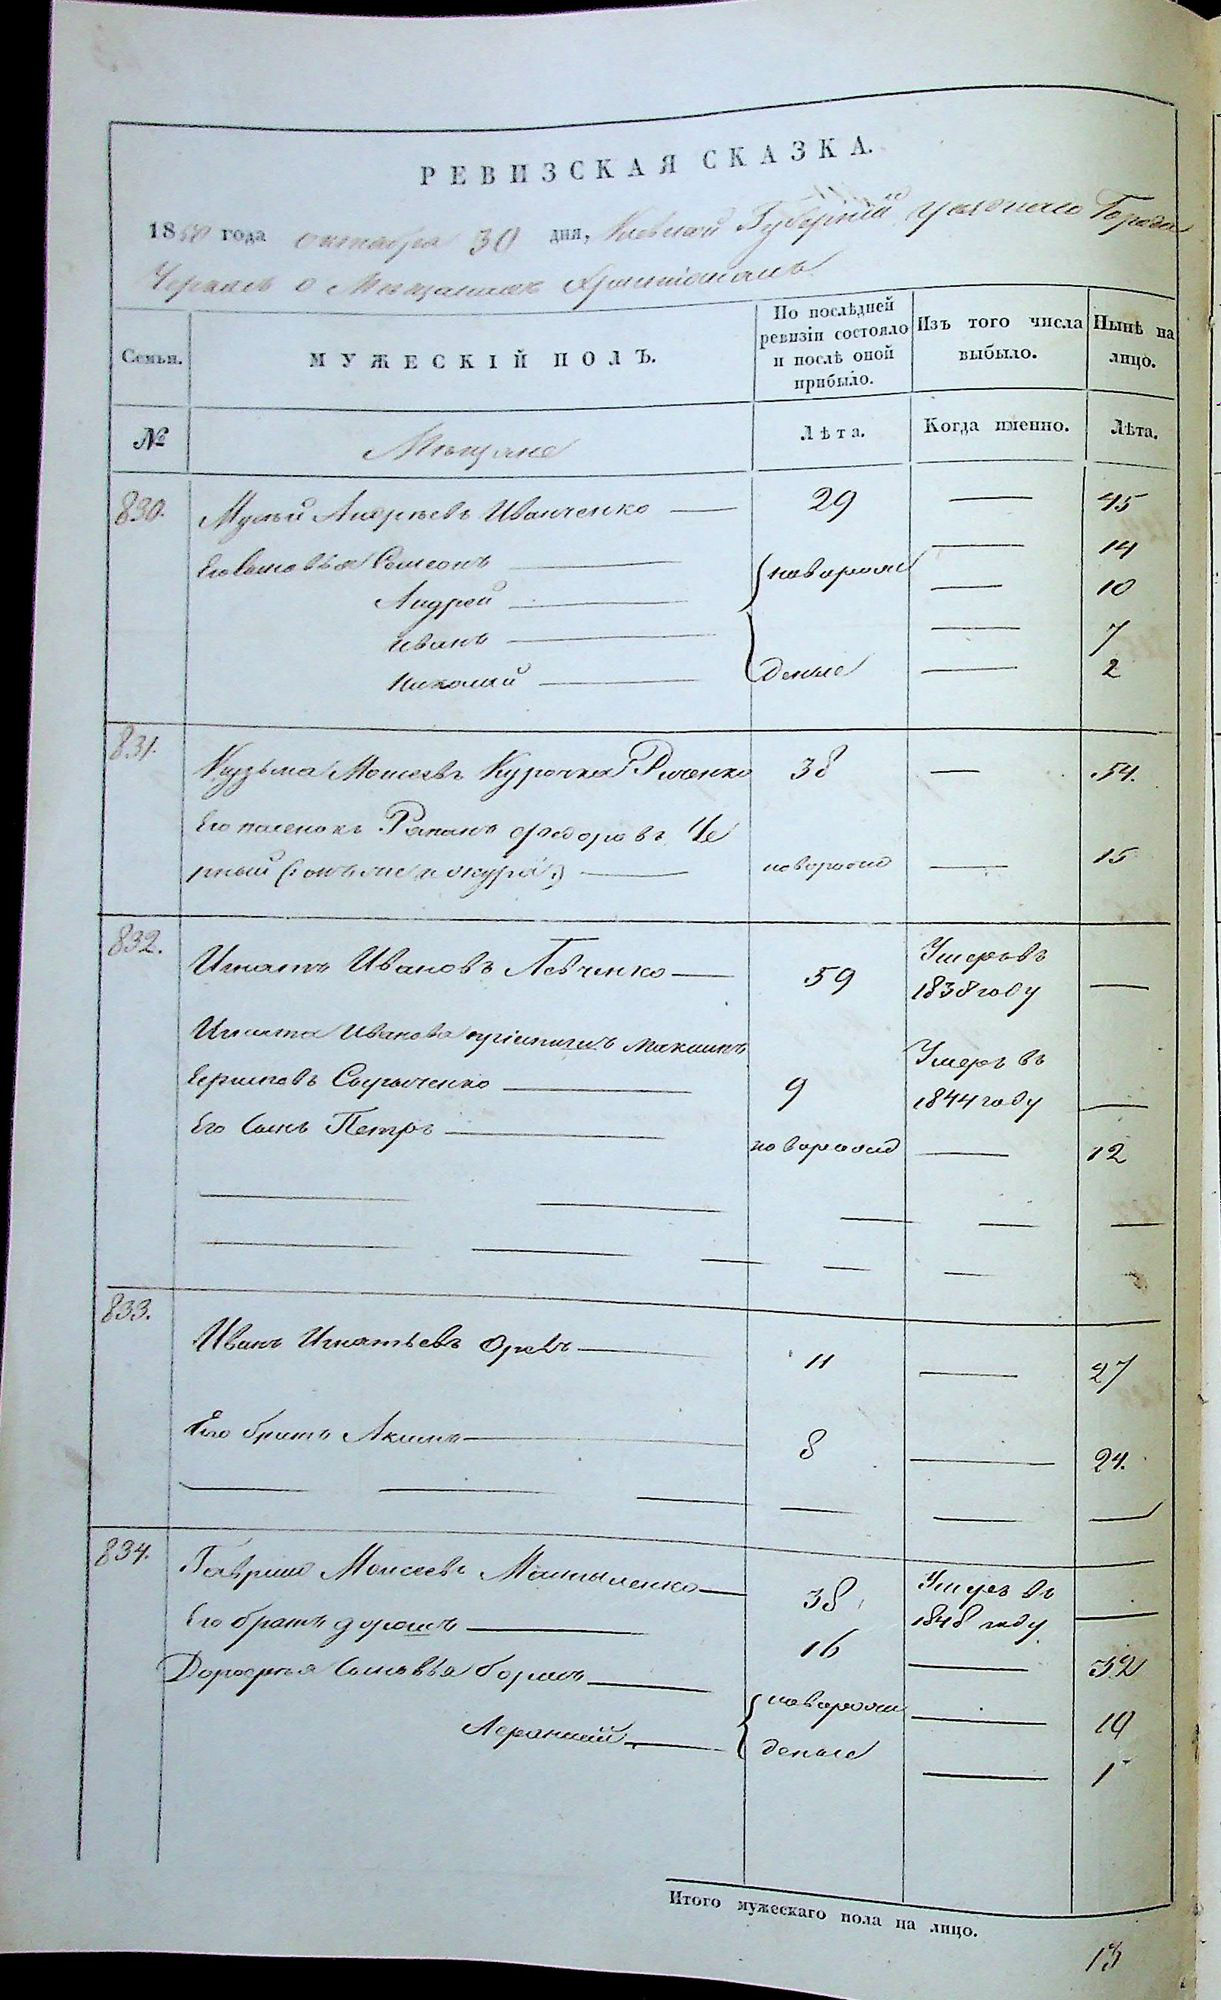 РЕВИЗСКАЯ СКАЗКА.
1850 года октября 30 дня, Киевской Губернии уезднаго Города
Черкасъ о Мещанахъ Христіанахъ
Семьи.
МУЖЕСКІЙ ПОЛЪ.
По послѣдней ревизіи состояло и послѣ оной прибыло.
Изъ того числа выбыло.
Нынѣ на лицо.
№
Мещане
Лѣта.
Когда именно.
Лѣта.
830. Андреевъ Иванченко — 29 — 45
Его Сыновья Семеонъ — новорож — 14
Андрей — 10
Иванъ — 7
Николай — денные — 2
831. Кузьма Моисеевъ Курочка 38 — 54.
Его пасенокъ Романъ Федоровъ Че
рный — новорожд — 15
832. Игнатъ Ивановъ Левченко — 59 Умеръ въ 1838 году —
Игната Иванова Максимъ
9 Умеръ въ 1844 году —
Его Сынъ Петръ — новорожд — 12
833. Иванъ Игнатьевъ — 11 — 27
Его братъ Акимъ — 8 — 24.
834. Гаврило Моисеевъ — 38 Умеръ въ 1848 году —
Его братъ — 16 — 32
Сыновья — новорож — 10
денные — 1
Итого мужескаго пола на лицо.
13